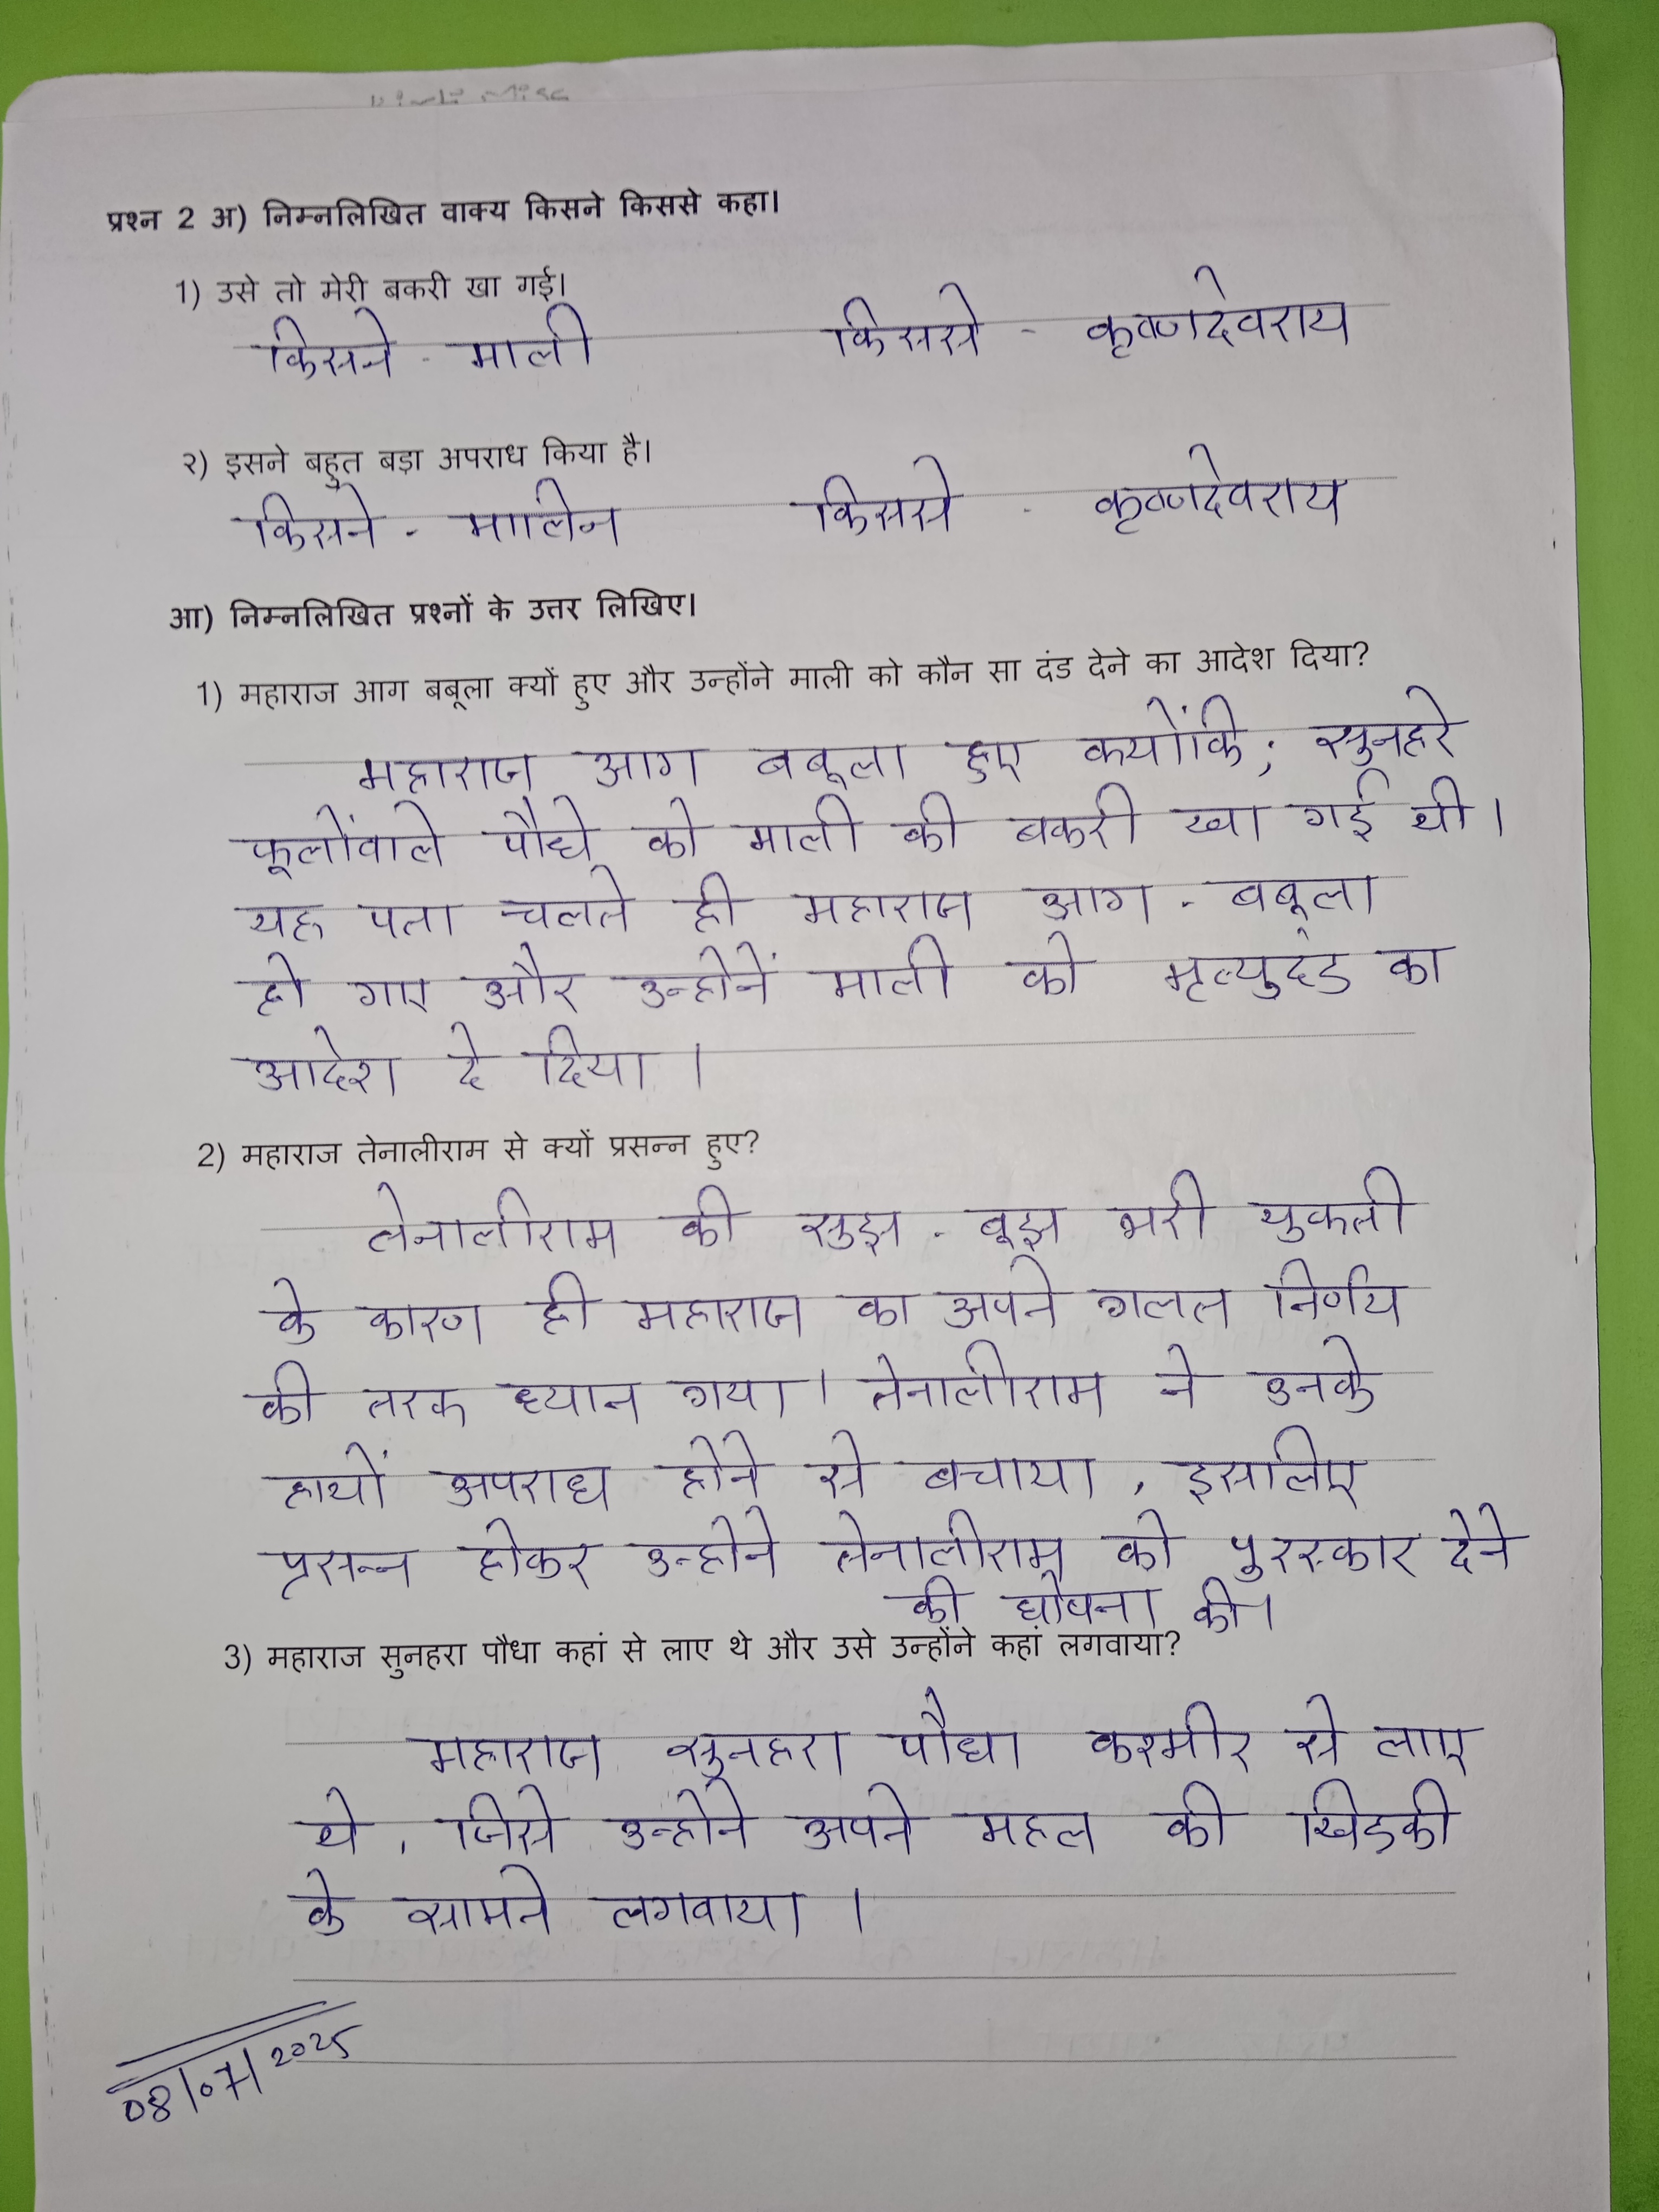 प्रश्न 2 अ) निम्नलिखित वाक्य किसने किससे कहा।
1) उसे तो मेरी बकरी खा गई।
किसने - माली किससे - कृष्णदेवराय
२) इसने बहुत बड़ा अपराध किया है।
किसने - मालिन किससे - कृष्णदेवराय
आ) निम्नलिखित प्रश्नों के उत्तर लिखिए।
1) महाराज आग बबूला क्यों हुए और उन्होंने माली को कौन सा दंड देने का आदेश दिया?
महाराज आग बबूला हुए क्योंकि; सुनहरे
फूलोंवाले पौधे को माली की बकरी खा गई थी।
यह पता चलते ही महाराज आग - बबूला
हो गए और उन्होनें माली को मृत्युदंड का
आदेश दे दिया।
2) महाराज तेनालीराम से क्यों प्रसन्न हुए?
तेनालीराम की सुझ - बूझ भरी युकती
के कारण ही महाराज का अपने गलत निर्णय
की तरफ ध्यान गया। तेनालीराम ने उनके
हाथों अपराध होने से बचाया, इसलिए
प्रसन्न होकर उन्होने तेनालीराम को पुरस्कार देने
की घोषना की।
3) महाराज सुनहरा पौधा कहां से लाए थे और उसे उन्होंने कहां लगवाया?
महाराज सुनहरा पौधा कश्मीर से लाए
थे, जिसे उन्होने अपने महल की खिडकी
के सामने लगवाया।
08/07/2025